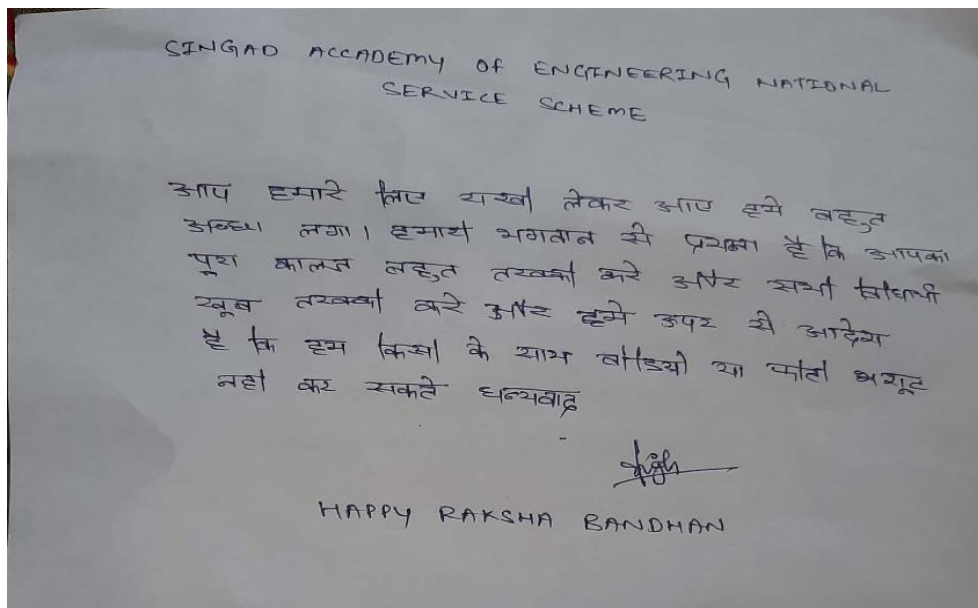 SINGAD ACCADEMY OF ENGINEERING NATIONAL
SERVICE SCHEME
आप हमारे लिए राखी लेकर आए हमे बहुत
अच्छा लगा। हमारी भगवान से प्राथना है कि आपका
पूरा कालज बहुत तरक्की करे और सभी विधार्थी
खूब तरक्की करे और हमे उपर से आदेश
है कि हम किसी के साथ वीडियो या फोटो शूट
नही कर सकते धन्यवाद
HAPPY RAKSHA BANDHAN